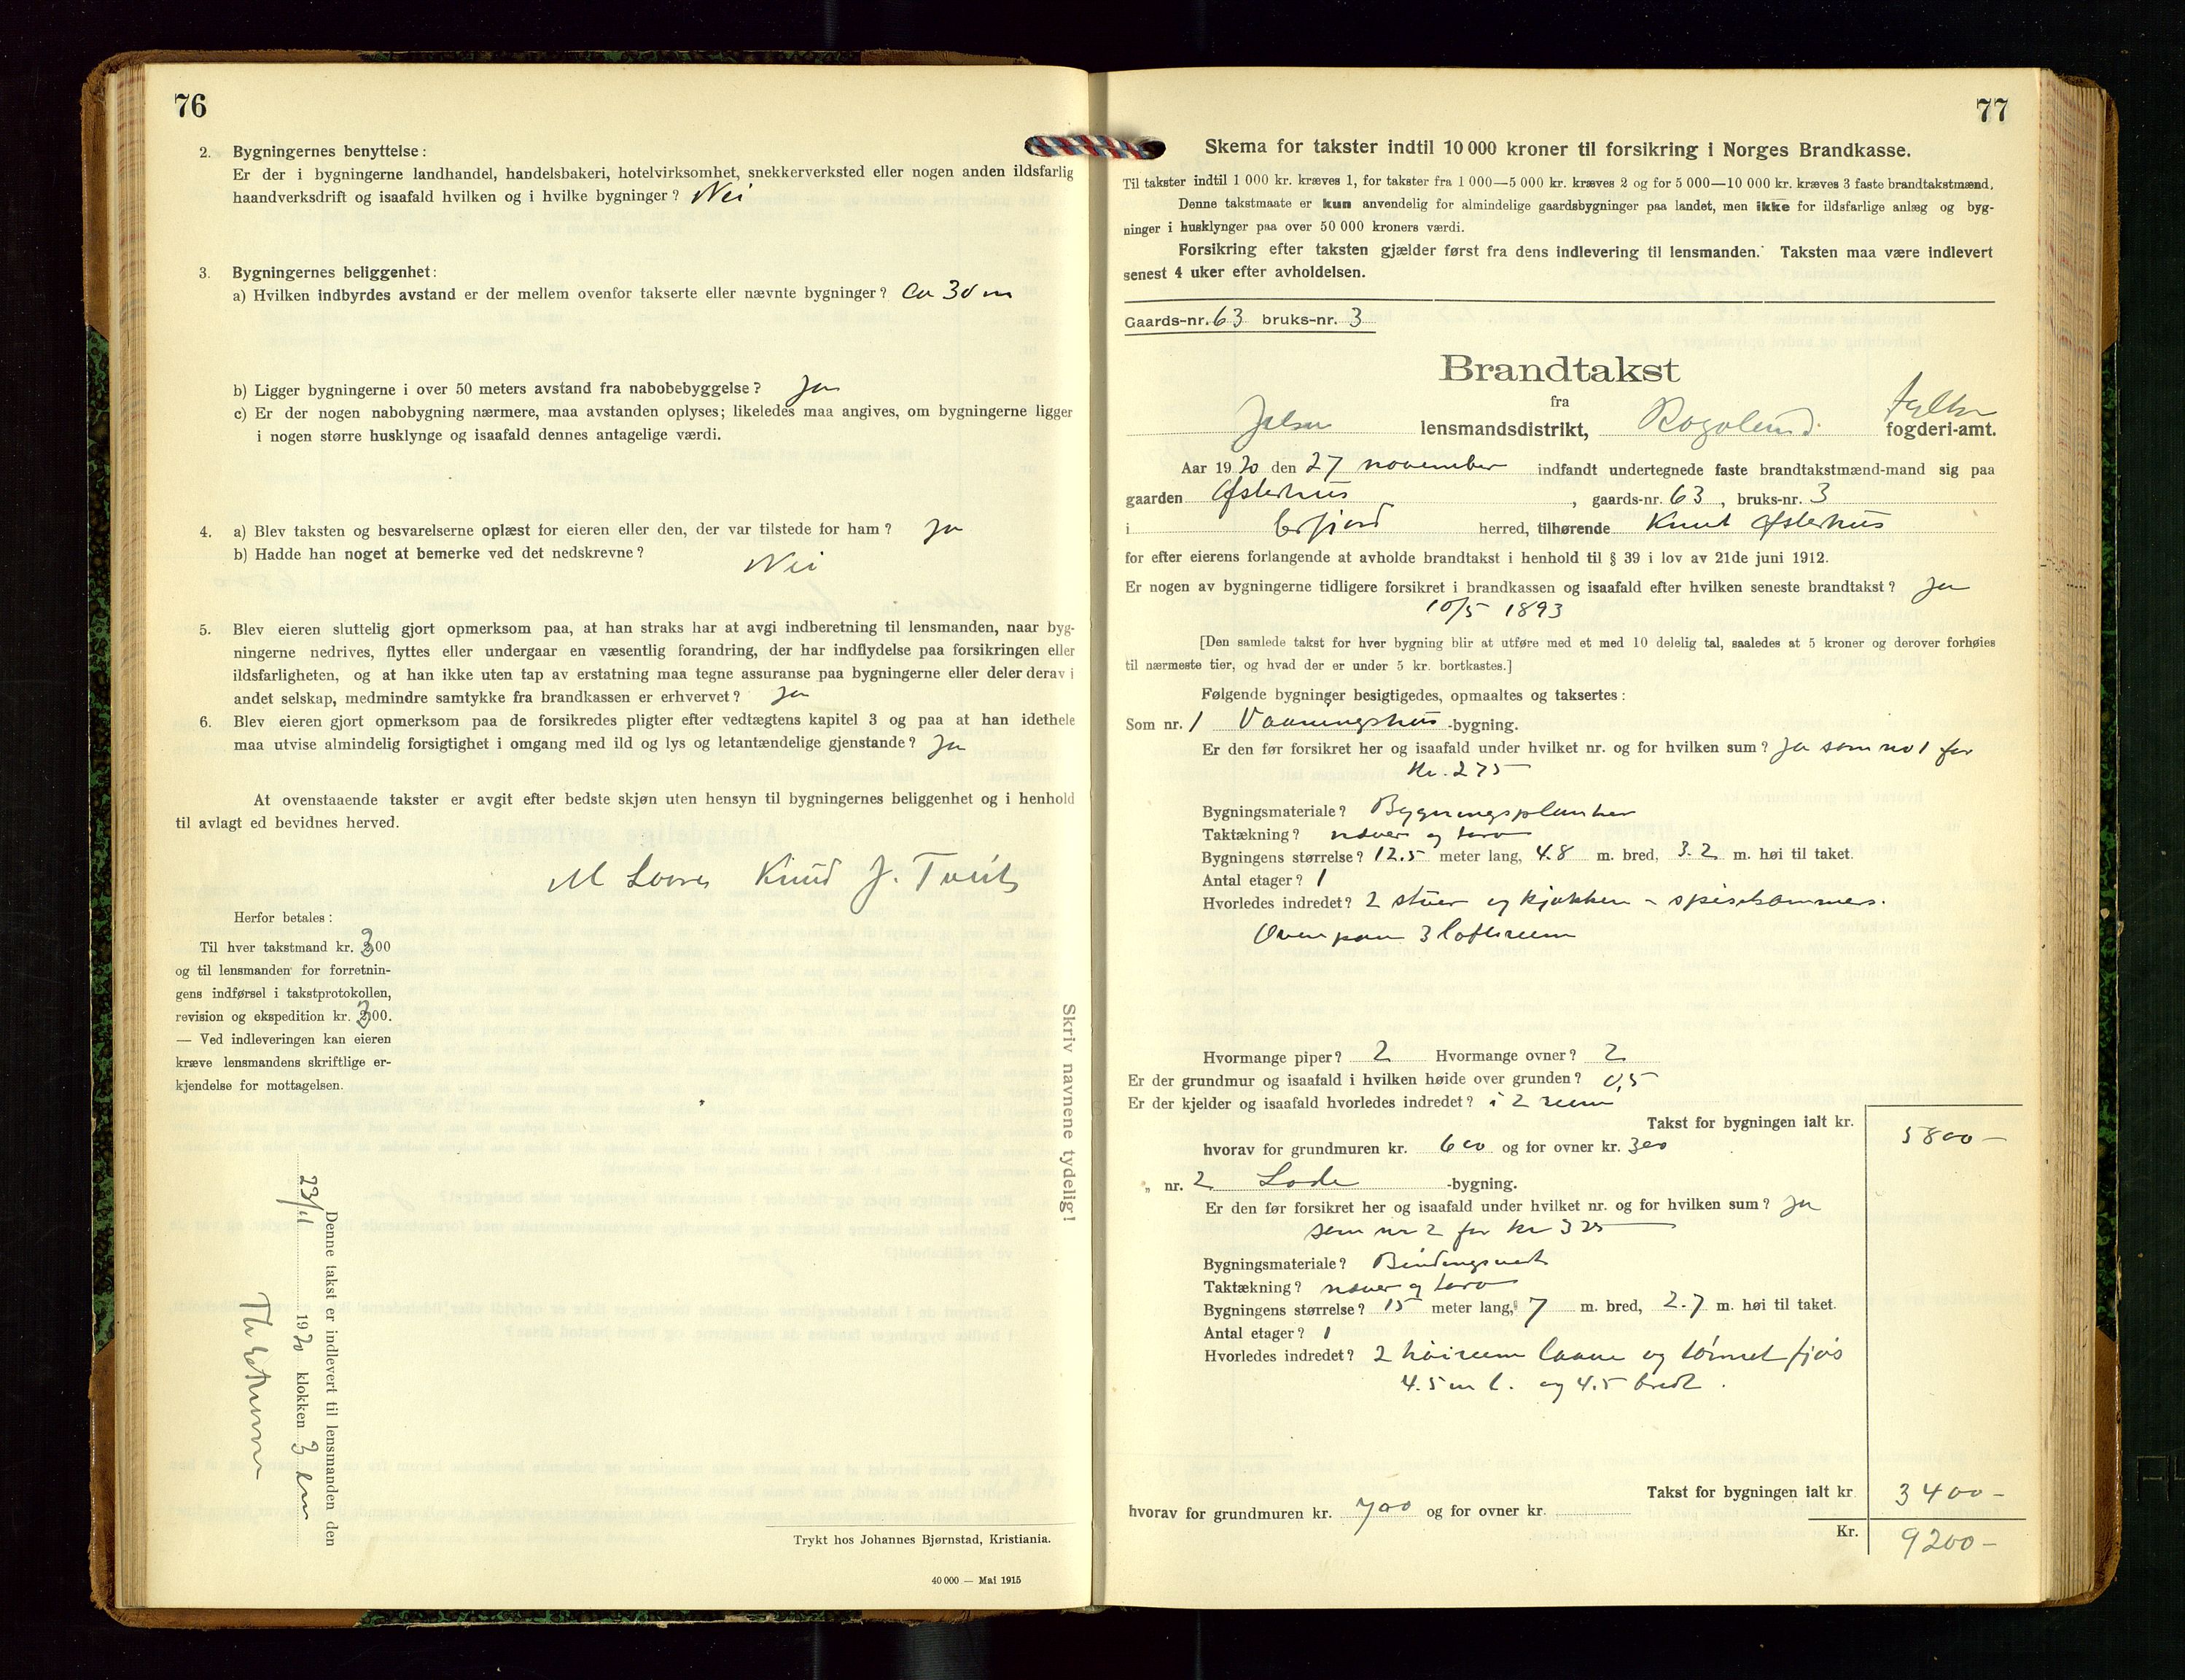 76
2. Bygningernes benyttelse:
Er der i bygningerne landhandel, handelsbakeri, hotelvirksomhet, snekkerverksted eller nogen anden ildsfarlig
haandverksdrift og isaafald hvilken og i hvilke bygninger? Nei
3. Bygningernes beliggenhet:
a) Hvilken indbyrdes avstand er der mellem ovenfor takserte eller nævnte bygninger? Ca 30 m
b) Ligger bygningerne i over 50 meters avstand fra nabobebyggelse? Ja
c) Er der nogen nabobygning nærmere, maa avstanden oplyses; likeledes maa angives, om bygningerne ligger
i nogen større husklynge og isaafald dennes antagelige værdi.
4. a) Blev taksten og besvarelserne oplæst for eieren eller den, der var tilstede for ham? Ja
b) Hadde han noget at bemerke ved det nedskrevne?
Nei
5. Blev eieren sluttelig gjort opmerksom paa, at han straks har at avgi indberetning til lensmanden, naar byg-
ningerne nedrives, flyttes eller undergaar en væsentlig forandring, der har indflydelse paa forsikringen eller
ildsfarligheten, og at han ikke uten tap av erstatning maa tegne assuranse paa bygningerne eller deler derav i
andet selskap, medmindre samtykke fra brandkassen er erhvervet? Ja
6. Blev eieren gjort opmerksom paa de forsikredes pligter efter vedtægtens kapitel 3 og paa at han idethele
maa utvise almindelig forsigtighet i omgang med ild og lys og letantændelige gjenstande? Ja
At ovenstaaende takster er avgit efter bedste skjøn uten hensyn til bygningernes beliggenhet og i henhold
til avlagt ed bevidnes herved.
M Knud J. Tveit
Herfor betales:
Til hver takstmand kr. 3,00
og til lensmanden for forretnin-
gens indførsel i takstprotokollen,
revision og ekspedition kr. 3,00.
— Ved indleveringen kan eieren
kræve lensmandens skriftlige er-
kjendelse for mottagelsen.
Denne takst er indlevert til lensmanden den
23/11 1920 klokken 3 em
Skriv navnene tydelig!
Trykt hos Johannes Bjørnstad, Kristiania.
40 000 — Mai 1915
77
Skema for takster indtil 10 000 kroner til forsikring i Norges Brandkasse.
Til takster indtil 1 000 kr. kræves 1, for takster fra 1 000—5 000 kr. kræves 2 og for 5 000—10 000 kr. kræves 3 faste brandtakstmænd.
Denne takstmaate er kun anvendelig for almindelige gaardsbygninger paa landet, men ikke for ildsfarlige anlæg og byg-
ninger i husklynger paa over 50 000 kroners værdi.
Forsikring efter taksten gjælder først fra dens indlevering til lensmanden. Taksten maa være indlevert
senest 4 uker efter avholdelsen.
Gaards-nr. 63 bruks-nr. 3
Brandtakst
fra
Jelsa lensmandsdistrikt, Rogaland fylke fogderi-amt.
Aar 1920 den 27 november indfandt undertegnede faste brandtakstmænd-mand sig paa
gaarden Østerhus, gaards-nr. 63, bruks-nr. 3
i Erfjord herred, tilhørende Knut Østerhus
for efter eierens forlangende at avholde brandtakst i henhold til § 39 i lov av 21de juni 1912.
Er nogen av bygningerne tidligere forsikret i brandkassen og isaafald efter hvilken seneste brandtakst? Ja
10/5 1893
[Den samlede takst for hver bygning blir at utføre med et med 10 delelig tal, saaledes at 5 kroner og derover forhøies
til nærmeste tier, og hvad der er under 5 kr. bortkastes.]
Følgende bygninger besigtigedes, opmaaltes og taksertes:
Som nr. 1 Vaaningshus-bygning.
Er den før forsikret her og isaafald under hvilket nr. og for hvilken sum? Ja som no 1 for
Kr. 275
Bygningsmateriale? Bygningsplanker
Taktækning? næver og torv
Bygningens størrelse? 12.5 meter lang, 4.8 m. bred, 3.2 m. høi til taket.
Antal etager? 1
Hvorledes indredet? 2 stuer og kjøkken - spisekammers.
Oven paa 3 loftsrum
Hvormange piper? 2 Hvormange ovner? 2
Er der grundmur og isaafald i hvilken høide over grunden? 0,5
Er der kjelder og isaafald hvorledes indredet? i 2 rum
Takst for bygningen ialt kr. 5800 —
hvorav for grundmuren kr. 600 og for ovner kr. 300
„ nr. 2 Lode-bygning.
Er den før forsikret her og isaafald under hvilket nr. og for hvilken sum? Ja
som nr 2 for kr 325
Bygningsmateriale? Bindingsverk
Taktækning? næver og torv
Bygningens størrelse? 15 meter lang, 7 m. bred, 2.7 m. høi til taket.
Antal etager? 1
Hvorledes indredet? 2 høirum laave og tømret fjøs
4.5 m l. og 4.5 bredt.
Takst for bygningen ialt kr 3400 —
hvorav for grundmuren kr. 700 og for ovner kr.
Kr. 9200 —